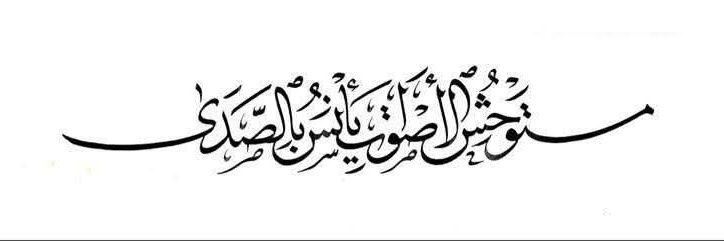 مستوحش الأصوات يأنس بالصَّدَى